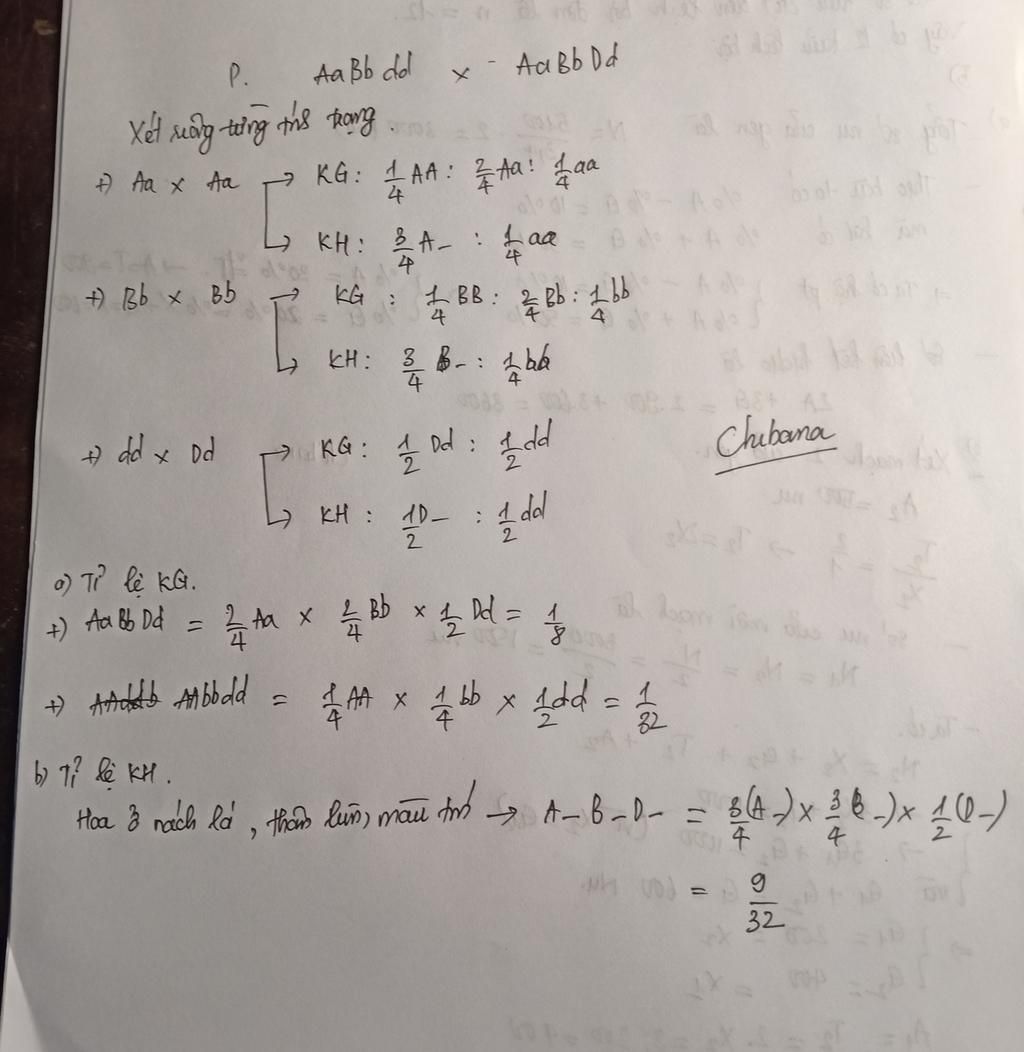 P. AaBb dd x AaBb Dd
Xét riêng từng tính trạng.
+) Aa x Aa → KG: 1/4 AA : 2/4 Aa : 1/4 aa
→ KH: 3/4 A- : 1/4 aa
+) Bb x Bb → KG : 1/4 BB : 2/4 Bb : 1/4 bb
→ KH: 3/4 B- : 1/4 bb
+) dd x Dd → KG: 1/2 Dd : 1/2 dd
→ KH : 1/2 D- : 1/2 dd
Chibana
a) Tỉ lệ KG.
+) AaBbDd = 2/4 Aa x 2/4 Bb x 1/2 Dd = 1/8
+) AAbbdd = 1/4 AA x 1/4 bb x 1/2 dd = 1/32
b) Tỉ lệ KH.
Hoa ở nách lá, thân lùn, màu → A-B-D- = 3/4(A-) x 3/4(B-) x 1/2(D-)
= 9/32